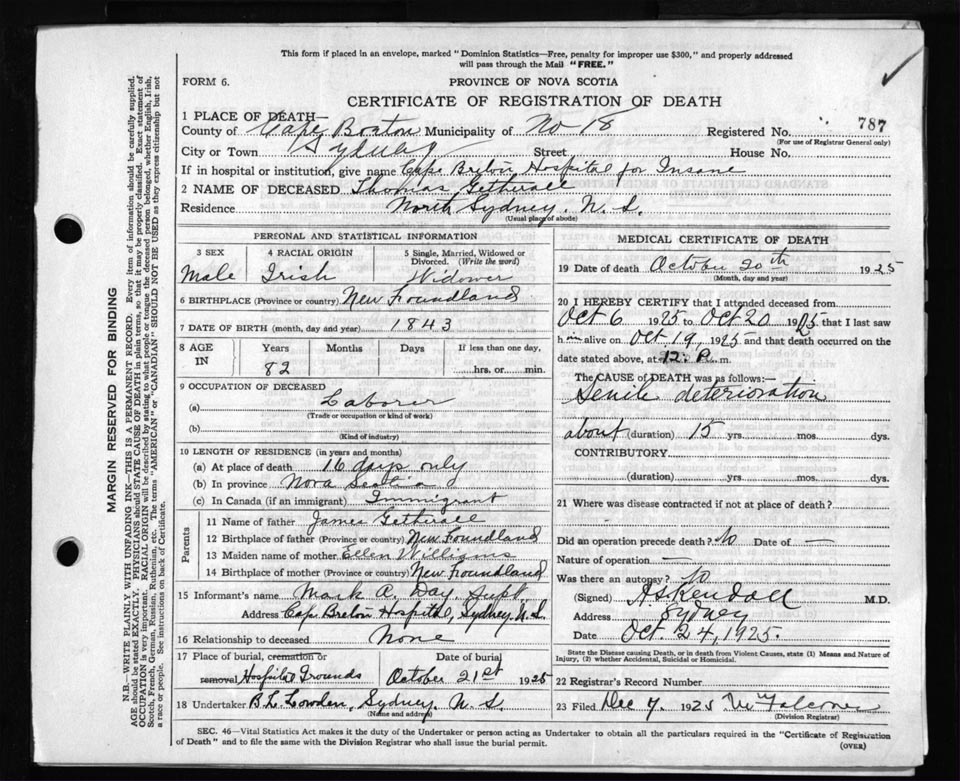 This form if placed in an envelope, marked "Dominion Statistics—Free, penalty for improper use $300," and properly addressed
will pass through the Mail "FREE."
FORM 6.
PROVINCE OF NOVA SCOTIA
CERTIFICATE OF REGISTRATION OF DEATH
1 PLACE OF DEATH—
County of Cape Breton Municipality of No 18 Registered No. 787
(For use of Registrar General only)
City or Town Sydney Street House No.
If in hospital or institution, give name Cape Breton Hospital for Insane
2 NAME OF DECEASED Thomas Getherall
Residence North Sydney. N. S.
(Usual place of abode)
PERSONAL AND STATISTICAL INFORMATION
3 SEX 4 RACIAL ORIGIN 5 Single, Married, Widowed or Divorced. (Write the word)
Male Irish Widower
6 BIRTHPLACE (Province or country) New Foundland
7 DATE OF BIRTH (month, day and year) 1843
8 AGE IN Years Months Days If less than one day,
82 hrs. or min.
9 OCCUPATION OF DECEASED
(a) Laborer
(Trade or occupation or kind of work)
(b)
(Kind of industry)
10 LENGTH OF RESIDENCE (in years and months)
(a) At place of death 16 days only
(b) In province Nova Scotia
(c) In Canada (if an immigrant) Immigrant
Parents
11 Name of father James Getherall
12 Birthplace of father (Province or country) New Foundland
13 Maiden name of mother Ellen Williams
14 Birthplace of mother (Province or country) New Foundland
15 Informant's name Mark A. Day Supt.
Address Cape Breton Hospital, Sydney. N. S.
16 Relationship to deceased None
17 Place of burial, cremation or removal Hospital Grounds Date of burial October 21st 1925
18 Undertaker B. L. Lowden, Sydney. N. S.
(Name and address)
MEDICAL CERTIFICATE OF DEATH
19 Date of death October 20th 1925
(Month, day and year)
20 I HEREBY CERTIFY that I attended deceased from
Oct 6 1925 to Oct 20 1925 that I last saw
him alive on Oct 19, 1925 and that death occurred on the
date stated above, at 12. P. m.
The CAUSE OF DEATH was as follows:—
Senile deterioration
about (duration) 15 yrs. mos. dys.
CONTRIBUTORY
(duration) yrs. mos. dys.
21 Where was disease contracted if not at place of death?
Did an operation precede death? No Date of —
Nature of operation —
Was there an autopsy? No
(Signed) A S Kendall M.D.
Address Sydney
Date Oct. 24, 1925.
State the Disease causing Death, or in death from Violent Causes, state (1) Means and Nature of
Injury, (2) whether Accidental, Suicidal or Homicidal.
22 Record Number
23 Filed Dec 7. 1925
(Division Registrar)
SEC. 46—Vital Statistics Act makes it the duty of the Undertaker or person acting as Undertaker to obtain all the particulars required in the "Certificate of Registration
of Death" and to file the same with the Division Registrar who shall issue the burial permit.
(OVER)
MARGIN RESERVED FOR BINDING
N.B.—WRITE PLAINLY WITH UNFADING INK—THIS IS A PERMANENT RECORD. Every item of information should be carefully supplied.
AGE should be stated EXACTLY. PHYSICIANS should STATE CAUSE OF DEATH in plain terms, so that it may be properly classified. Exact statement of
OCCUPATION is very important. RACIAL ORIGIN will be described by stating to what people or tongue the deceased person belonged, whether English, Irish,
Scotch, French, German, Russian, Ruthenian, etc. The terms "AMERICAN" or "CANADIAN" SHOULD NOT BE USED as they express citizenship but not
a race or people. See instructions on back of Certificate.